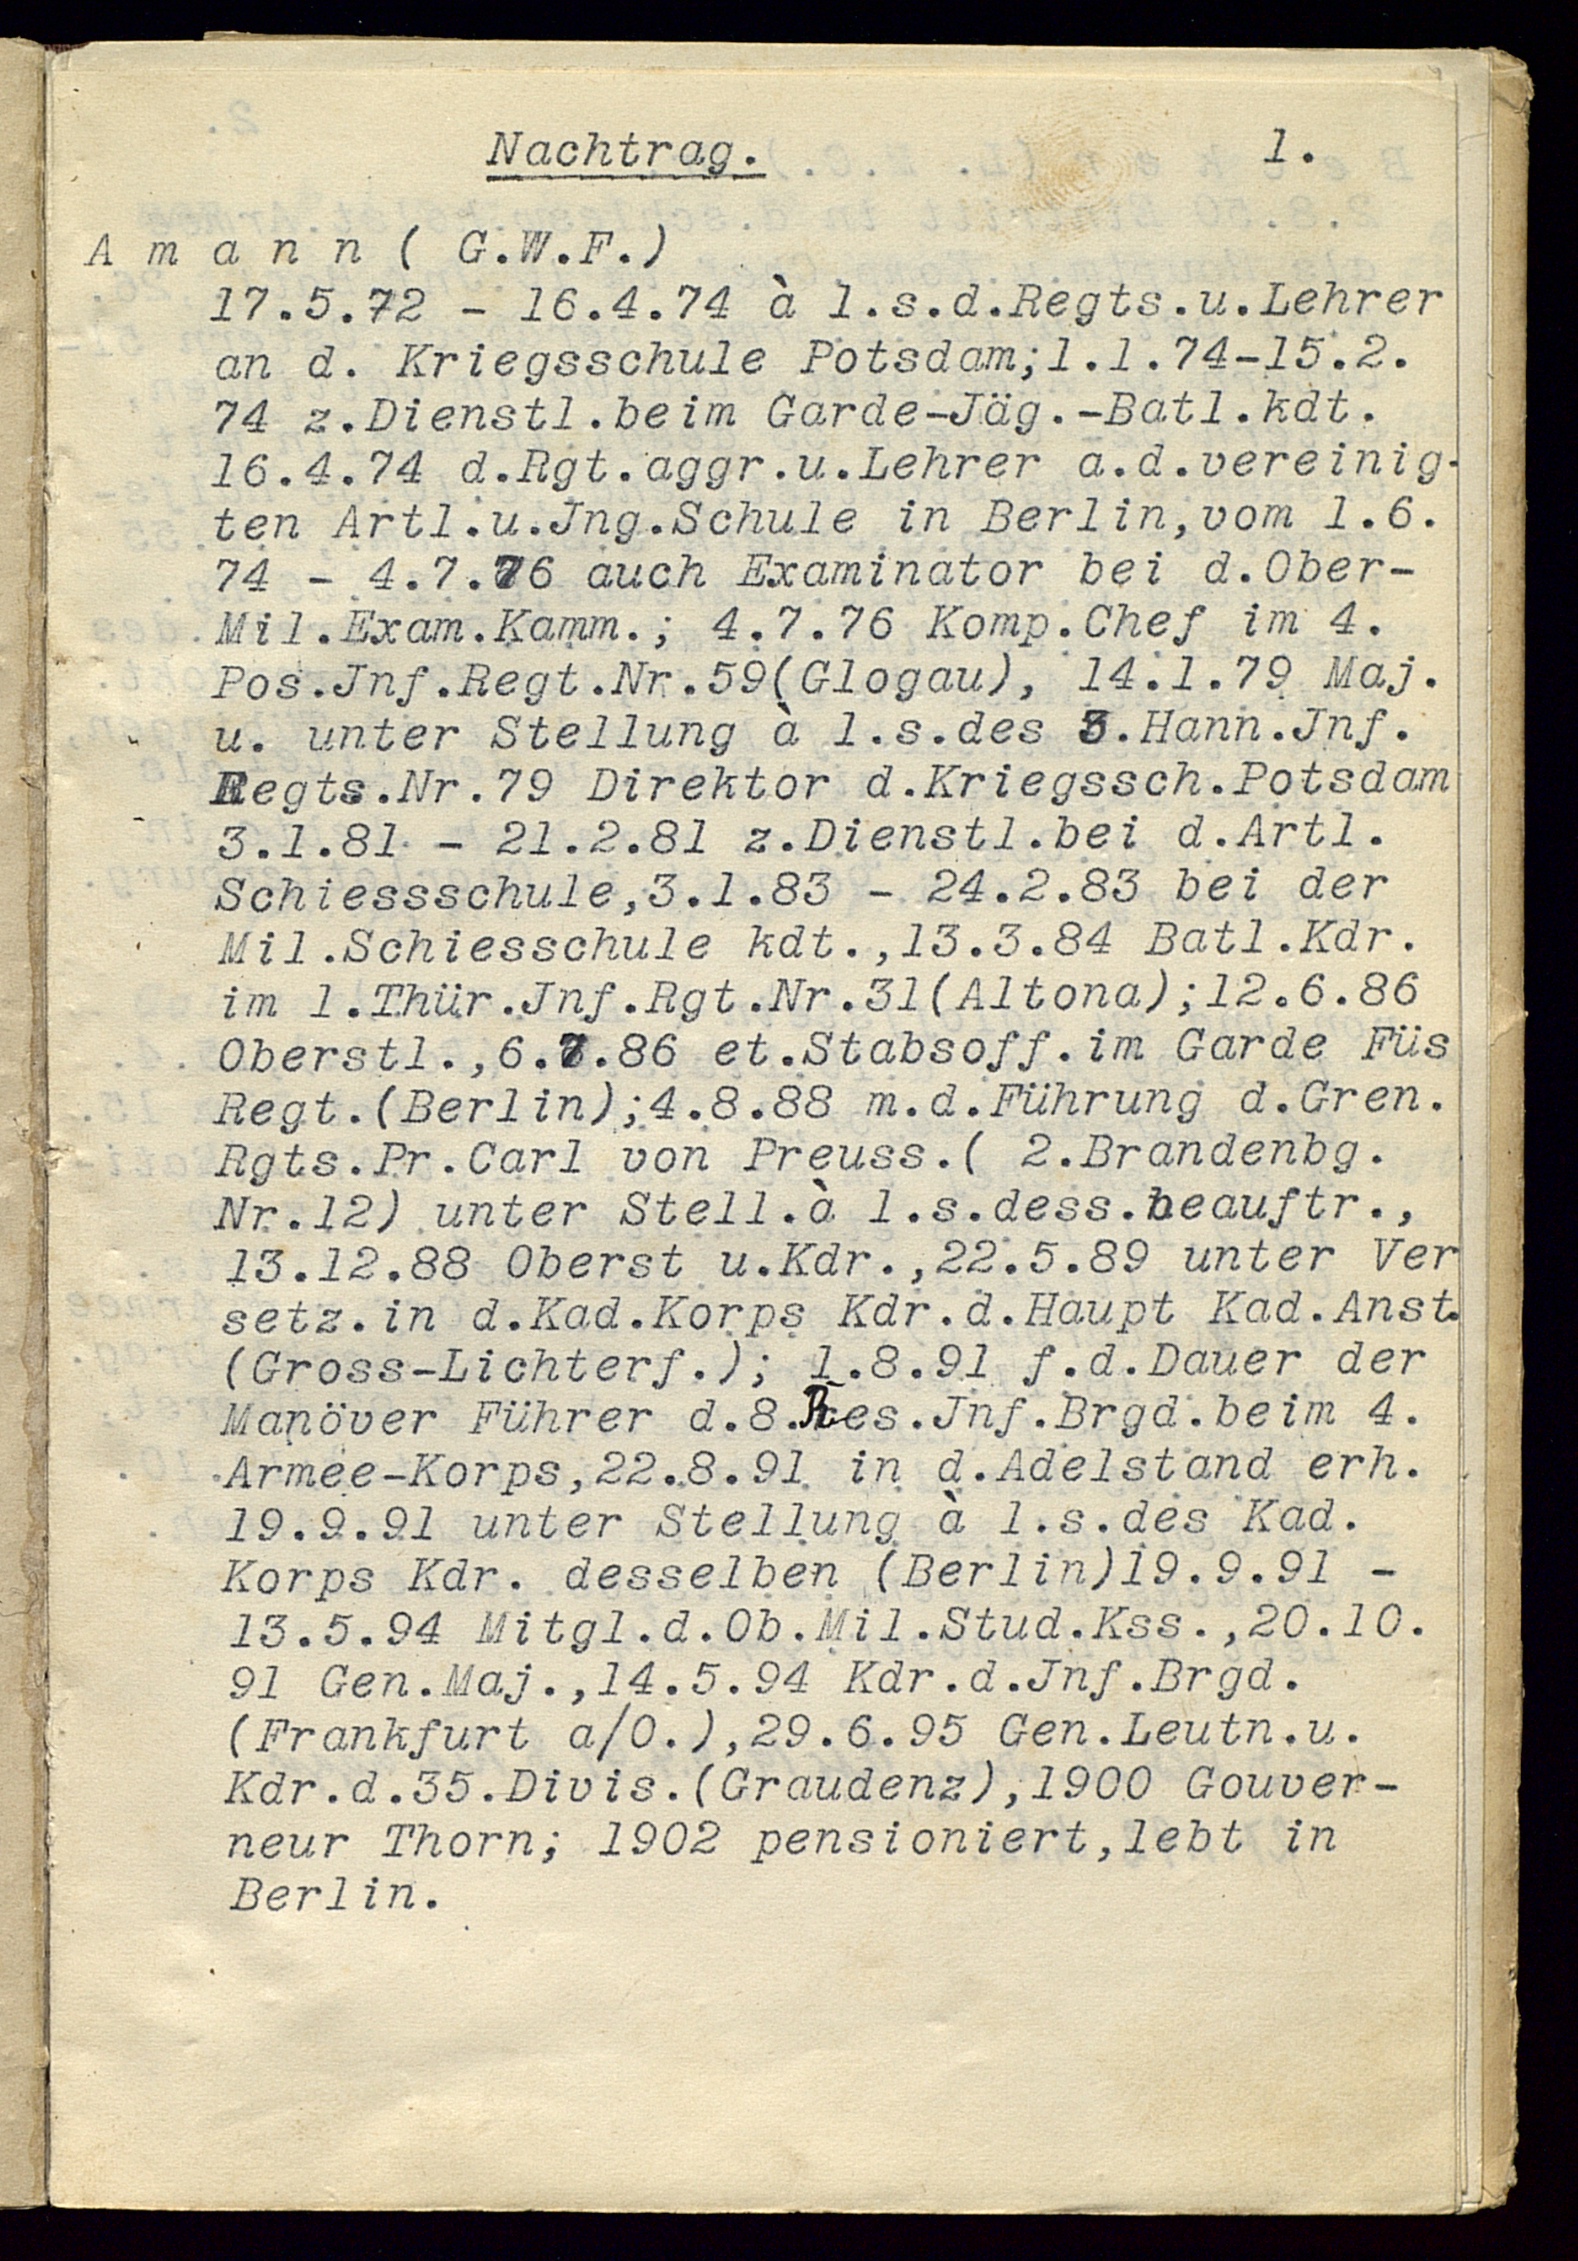 Nachtrag. 1.
A m a n n ( G.W.F.)
17.5.72 - 16.4.74 à l.s.d.Regts.u.Lehrer
an d. Kriegsschule Potsdam;1.1.74-15.2.
74 z.Dienstl.beim Garde-Jäg.-Batl.kdt.
16.4.74 d.Rgt.aggr.u.Lehrer a.d.vereinig-
ten Artl.u.Jng.Schule in Berlin,vom 1.6.
74 - 4.7.76 auch Examinator bei d.Ober-
Mil.Exam.Kamm.; 4.7.76 Komp.Chef im 4.
Pos.Jnf.Regt.Nr.59(Glogau), 14.1.79 Maj.
u. unter Stellung à l.s.des 3.Hann.Jnf.
Regts.Nr.79 Direktor d.Kriegssch.Potsdam
3.1.81 - 21.2.81 z.Dienstl.bei d.Artl.
Schiessschule,3.1.83 - 24.2.83 bei der
Mil.Schiesschule kdt.,13.3.84 Batl.Kdr.
im 1.Thür.Jnf.Rgt.Nr.31(Altona);12.6.86
Oberstl.,6.7.86 et.Stabsoff.im Garde Füs
Regt.(Berlin);4.8.88 m.d.Führung d.Gren.
Rgts.Pr.Carl von Preuss.( 2.Brandenbg.
Nr.12) unter Stell.à l.s.dess.beauftr.,
13.12.88 Oberst u.Kdr.,22.5.89 unter Ver
setz.in d.Kad.Korps Kdr.d.Haupt Kad.Anst.
(Gross-Lichterf.); 1.8.91 f.d.Dauer der
Manöver Führer d.8.Res.Jnf.Brgd.beim 4.
Armee-Korps,22.8.91 in d.Adelstand erh.
19.9.91 unter Stellung à l.s.des Kad.
Korps Kdr. desselben (Berlin)19.9.91 -
13.5.94 Mitgl.d.Ob.Mil.Stud.Kss.,20.10.
91 Gen.Maj.,14.5.94 Kdr.d.Jnf.Brgd.
(Frankfurt a/O.),29.6.95 Gen.Leutn.u.
Kdr.d.35.Divis.(Graudenz),1900 Gouver-
neur Thorn; 1902 pensioniert,lebt in
Berlin.